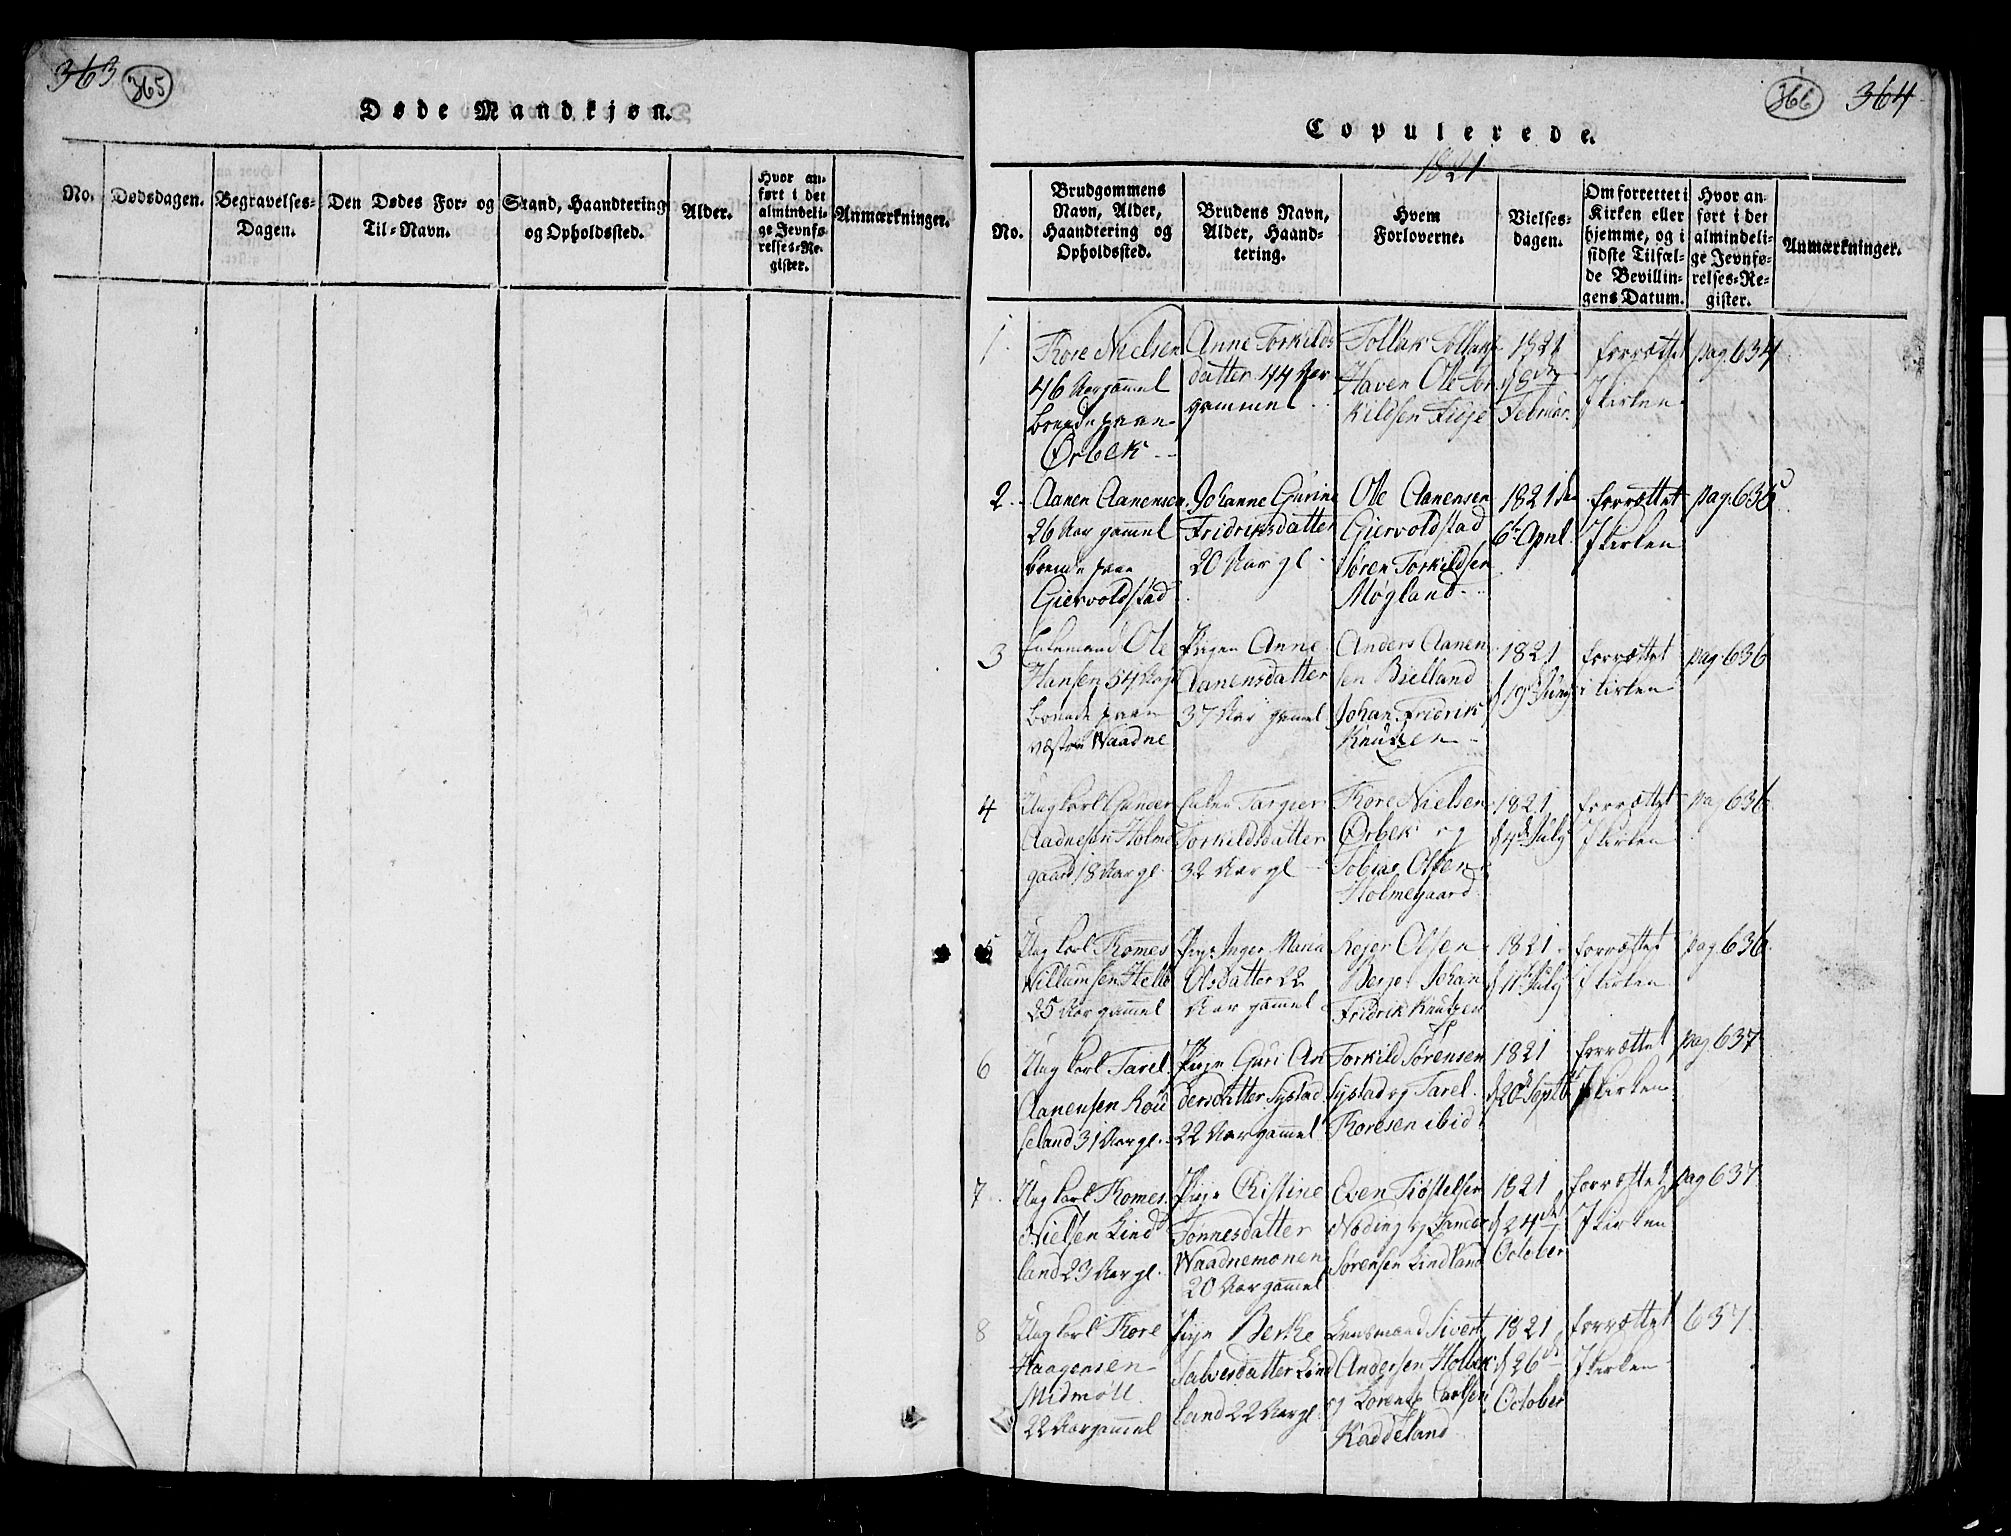 363 365
Døde Mandkjøn.
No.
Dødsdagen.
Begravelses-
Dagen.
Den Dødes For- og
Til-Navn.
Stand, Haandtering
og Opholdssted.
Alder.
Hvor an-
ført i det
almindeli-
ge Jevnfø-
relses-Re-
gister.
Anmærkninger.
366 364
Copulerede.
1821
No.
Brudgommens
Navn, Alder,
Haandtering og
Opholdssted.
Brudens Navn,
Alder, Haand-
tering.
Hvem
Forloverne.
Vielses-
dagen.
Om forrettet i
Kirken eller
hjemme, og i
sidste Tilfæl-
de Bevillin-
gens Datum.
Hvor an-
ført i det
almindeli-
ge Jevnfø-
relses-Re-
gister.
Anmærkninger.
1
Tore Nielsen
46 Aar gammel
boende paa
Ørbek
Anne Torkilds
datter 44 Aar
gammel
Tollak Tollak
Haven Ole Tor
kildsen Fisje
1821
d 8de
Februar
forrættet
I Kirken
pag 634
2
Aanen Aanensen
26 Aar gammel
boende paa
Giervoldstad
Johanne Gurine
Fridriksdatter
20 Aar gl
Ole Aanensen
Giervoldstad
Søren Torkildsen
Møgland
1821 den
6t April
forrættet
I Kirken
pag. 635
3
Enkemand Ole
Hansen 54 Aar gl
boende paa
væstre Waadne
Pigen Anne
Aanensdatter
37 Aar gammel
Anders Aanen
sen Bielland
Johan Fridrik
Knutzen
1821
d 19 Juny
forrættet
i Kirken
pag 636
4
Ung karl Gunder
Aadnesen Holme
gaard 18 Aar gl
Enken Targier
Torkildsdatter
32 Aar gl
Tore Nielsen
Ørbek og
Tobias Olsen
Holmegaard
1821
d 4de July
forrættet
I Kirken
pag 636
5
Ung karl Tomes
Willumsen Helle
25 Aar gammel
Pige Inger Maria
Olsdatter 22
Aar gammel
Reier Olsen
Berje Johan
Fridrik Knutzen
1821
d 11 July
forrættet
i Kirken
pag 636
6
Ung karl Tarel
Aanensen Røis
seland 31 Aar gl.
Pige Guri An
dersdatter Systad
22 Aar gammel
Torkild Sørensen
Systad og Tarel
Toresen ibid
1821
d 20de Septbr
forrættet
I Kirken
pag 637
7
Ung karl Tomes
Nielsen Lind
land 23 Aar gl.
Pige Cristine
Tønnesdatter
Waadnemonen
20 Aar gammel
Even Tiøstelsen
Nøding og Gunder
Sørensen Lindland
1821
d 24de
October
forrættet
I Kirken
pag 637
8
Ung karl Tore
Haagensen
Midmøll
22 Aar gammel
Pige Berthe
Salvesdatter Lind
land 22 Aar gl.
Lensmand Sivert
Andersen Holbek
og Lorents Carlsen
Raddeland
1821
d 26de
October
forrættet
I Kirken
637